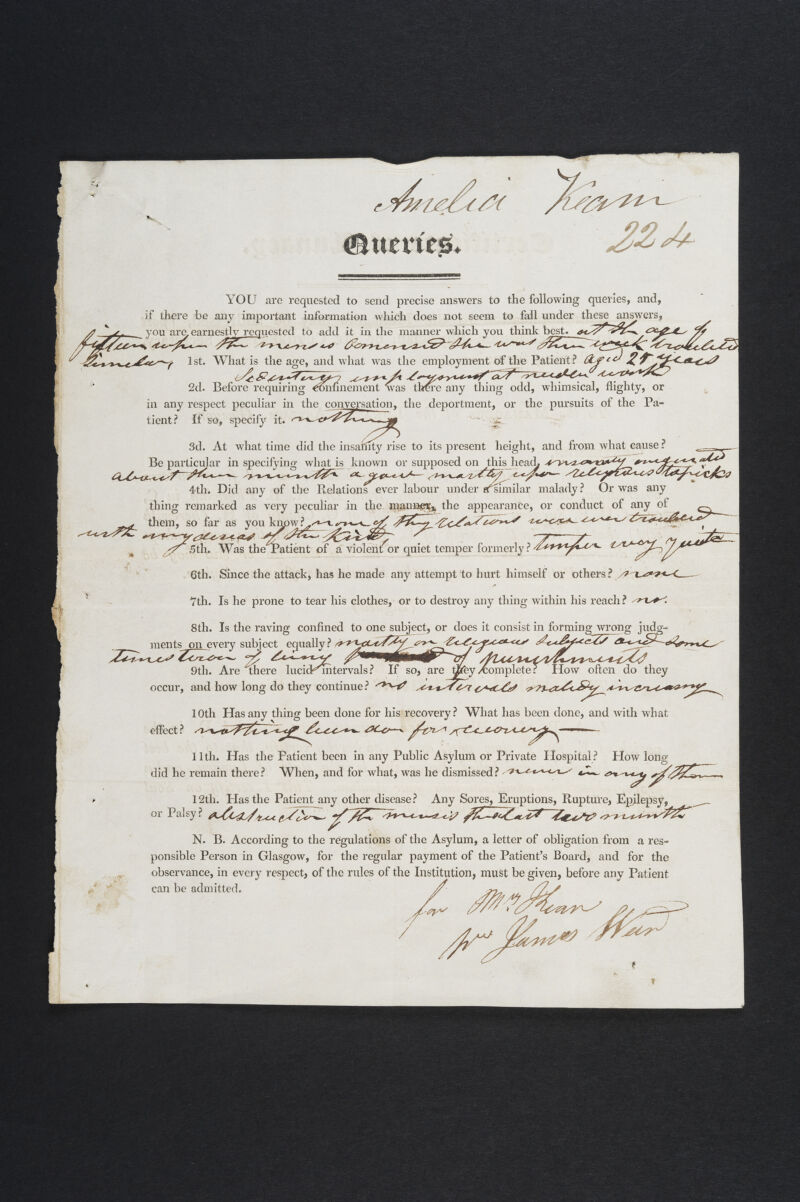 Amelia Kean
224
Queries.
YOU are requested to send precise answers to the following queries, and,
if there be any important information which does not seem to fall under these answers,
you are earnestly requested to add it in the manner which you think best. at the age of
fifteen when the menses comensed she was three week troubeled
1st. What is the age, and what was the employment of the Patient? aged 25 years
Sedentary employment at needle work
2d. Before requiring confinement was there any thing odd, whimsical, flighty, or
in any respect peculiar in the conversation, the deportment, or the pursuits of the Pa-
tient? If so, specify it. nothing
3d. At what time did the insanity rise to its present height, and from what cause?
Be particular in specifying what is known or supposed on this head, insanity originated
about three munth agoue mostly upon religious topicks
4th. Did any of the Relations ever labour under a similar malady? Or was any
thing remarked as very peculiar in the manner, the appearance, or conduct of any of
them, so far as you know? none of thy relations were ever troubled
with any deseas of the Kind
5th. Was the Patient of a violent or quiet temper formerly? temper very quite
6th. Since the attack, has he made any attempt to hurt himself or others? none
7th. Is he prone to tear his clothes, or to destroy any thing within his reach? no.
8th. Is the raving confined to one subject, or does it consist in forming wrong judg-
ments on every subject equally? mostly on religious subjects and some
times teror of being of punishments
9th. Are there lucid intervals? If so, are they complete? How often do they
occur, and how long do they continue? no intervals malidy increasing
10th Has any thing been done for his recovery? What has been done, and with what
effect? nothing been don for recovery
11th. Has the Patient been in any Public Asylum or Private Hospital? How long
did he remain there? When, and for what, was he dismissed? never in any of them
12th. Has the Patient any other disease? Any Sores, Eruptions, Rupture, Epilepsy,
or Palsy? obstruction of the mensis the last two munth
N. B. According to the regulations of the Asylum, a letter of obligation from a res-
ponsible Person in Glasgow, for the regular payment of the Patient's Board, and for the
observance, in every respect, of the rules of the Institution, must be given, before any Patient
can be admitted.
for Mrs Kean
pr James Weir